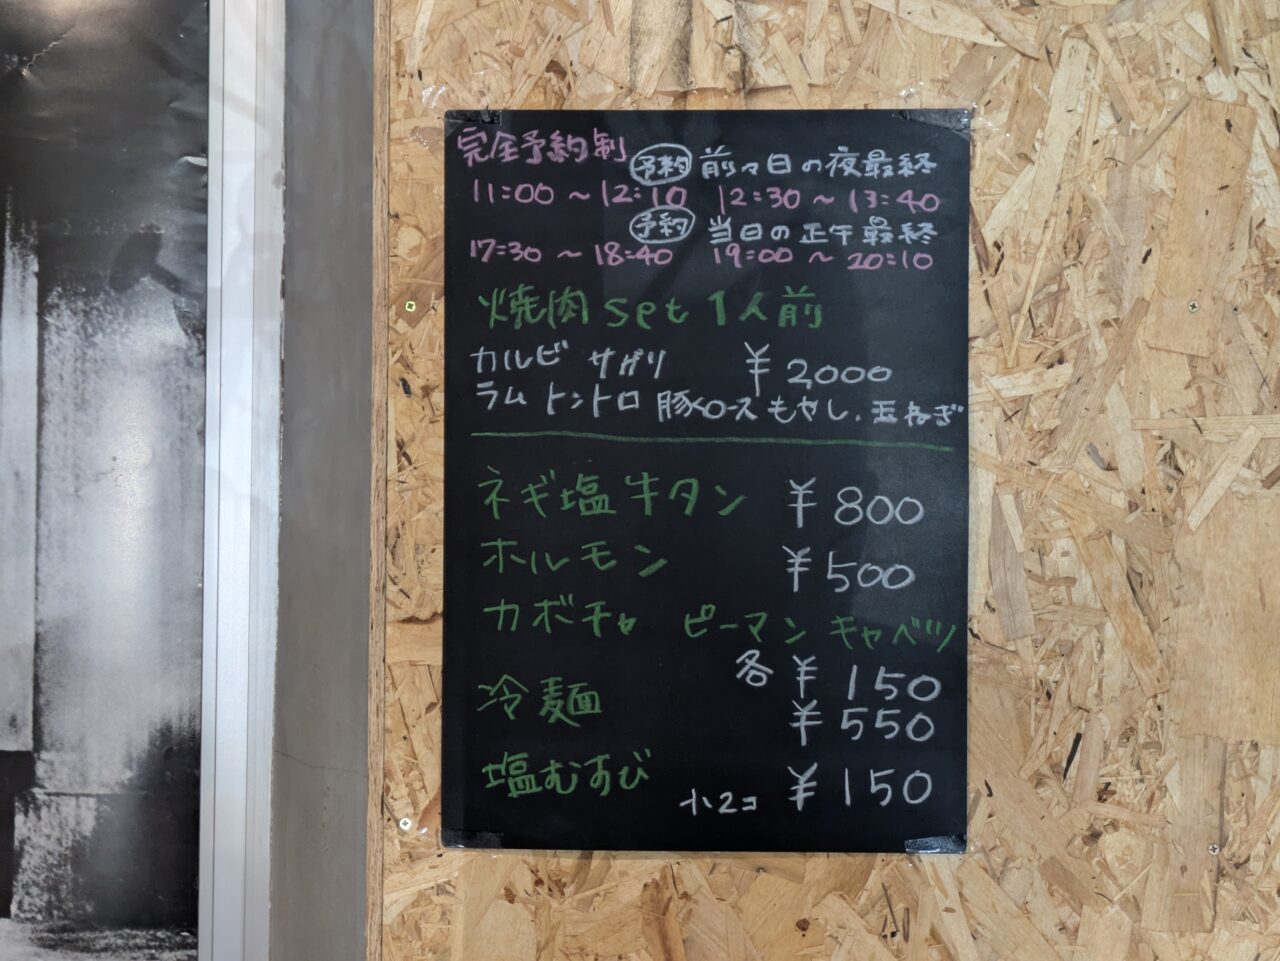 完全予約制
予約 前々日の夜最終
11:00 ~ 12:10 12:30 ~ 13:40
予約 当日の正午最終
17:30 ~ 18:40 19:00 ~ 20:10
焼肉 set 1人前
カルビ サガリ ¥2,000
ラム トントロ 豚ロース もやし、玉ねぎ
ネギ塩牛タン ¥800
ホルモン ¥500
カボチャ ピーマン キャベツ
各 ¥150
冷麺 ¥550
塩むすび 小2コ ¥150